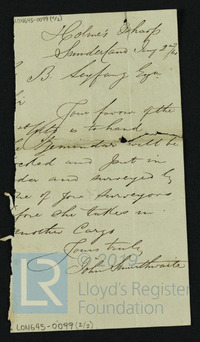 LON645-0099 (1/2)
Holmes Wharf
Sunderland Jany 2nd
B. Seyfang Esqr
Your favor of the
is to hand
will be
docked and put in
and surveyed by
one of your Surveyors
before she takes in
another Cargo
Yours truly
John Smurthwaite
© 2019
LR
Lloyd's Register
Foundation
LON645-0099 (2/2)